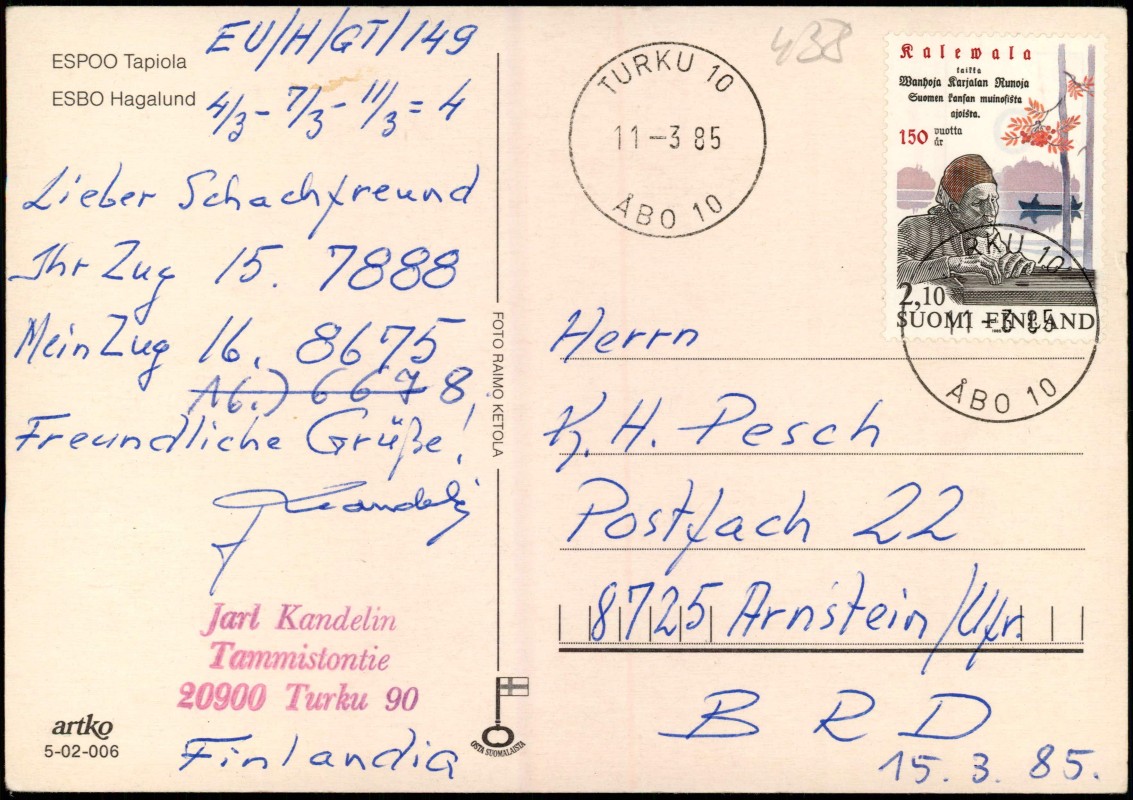 EU/H/GT/149
ESPOO Tapiola
ESBO Hagalund
4/3 - 7/3 - 11/3 = 4
Lieber Schachfreund
Ihr Zug 15. 7888
Mein Zug 16. 8675
16.) 6678
Freundliche Grüße!
JKandelin
Jarl Kandelin
Tammistontie
20900 Turku 90
Finlandia
artko
5-02-006
FOTO RAIMO KETOLA
OSTA SUOMALAISTA
438
TURKU 10
11-3 85
ÅBO 10
Kalewala
taikka
Wanhoja Karjalan Runoja
Suomen kansan muinosista
ajoista.
150 vuotta
år
2,10
SUOMI FINLAND
TURKU 10
11-3 85
ÅBO 10
Herrn
K. H. Pesch
Postfach 22
8725 Arnstein/Ufr.
BRD
15. 3. 85.